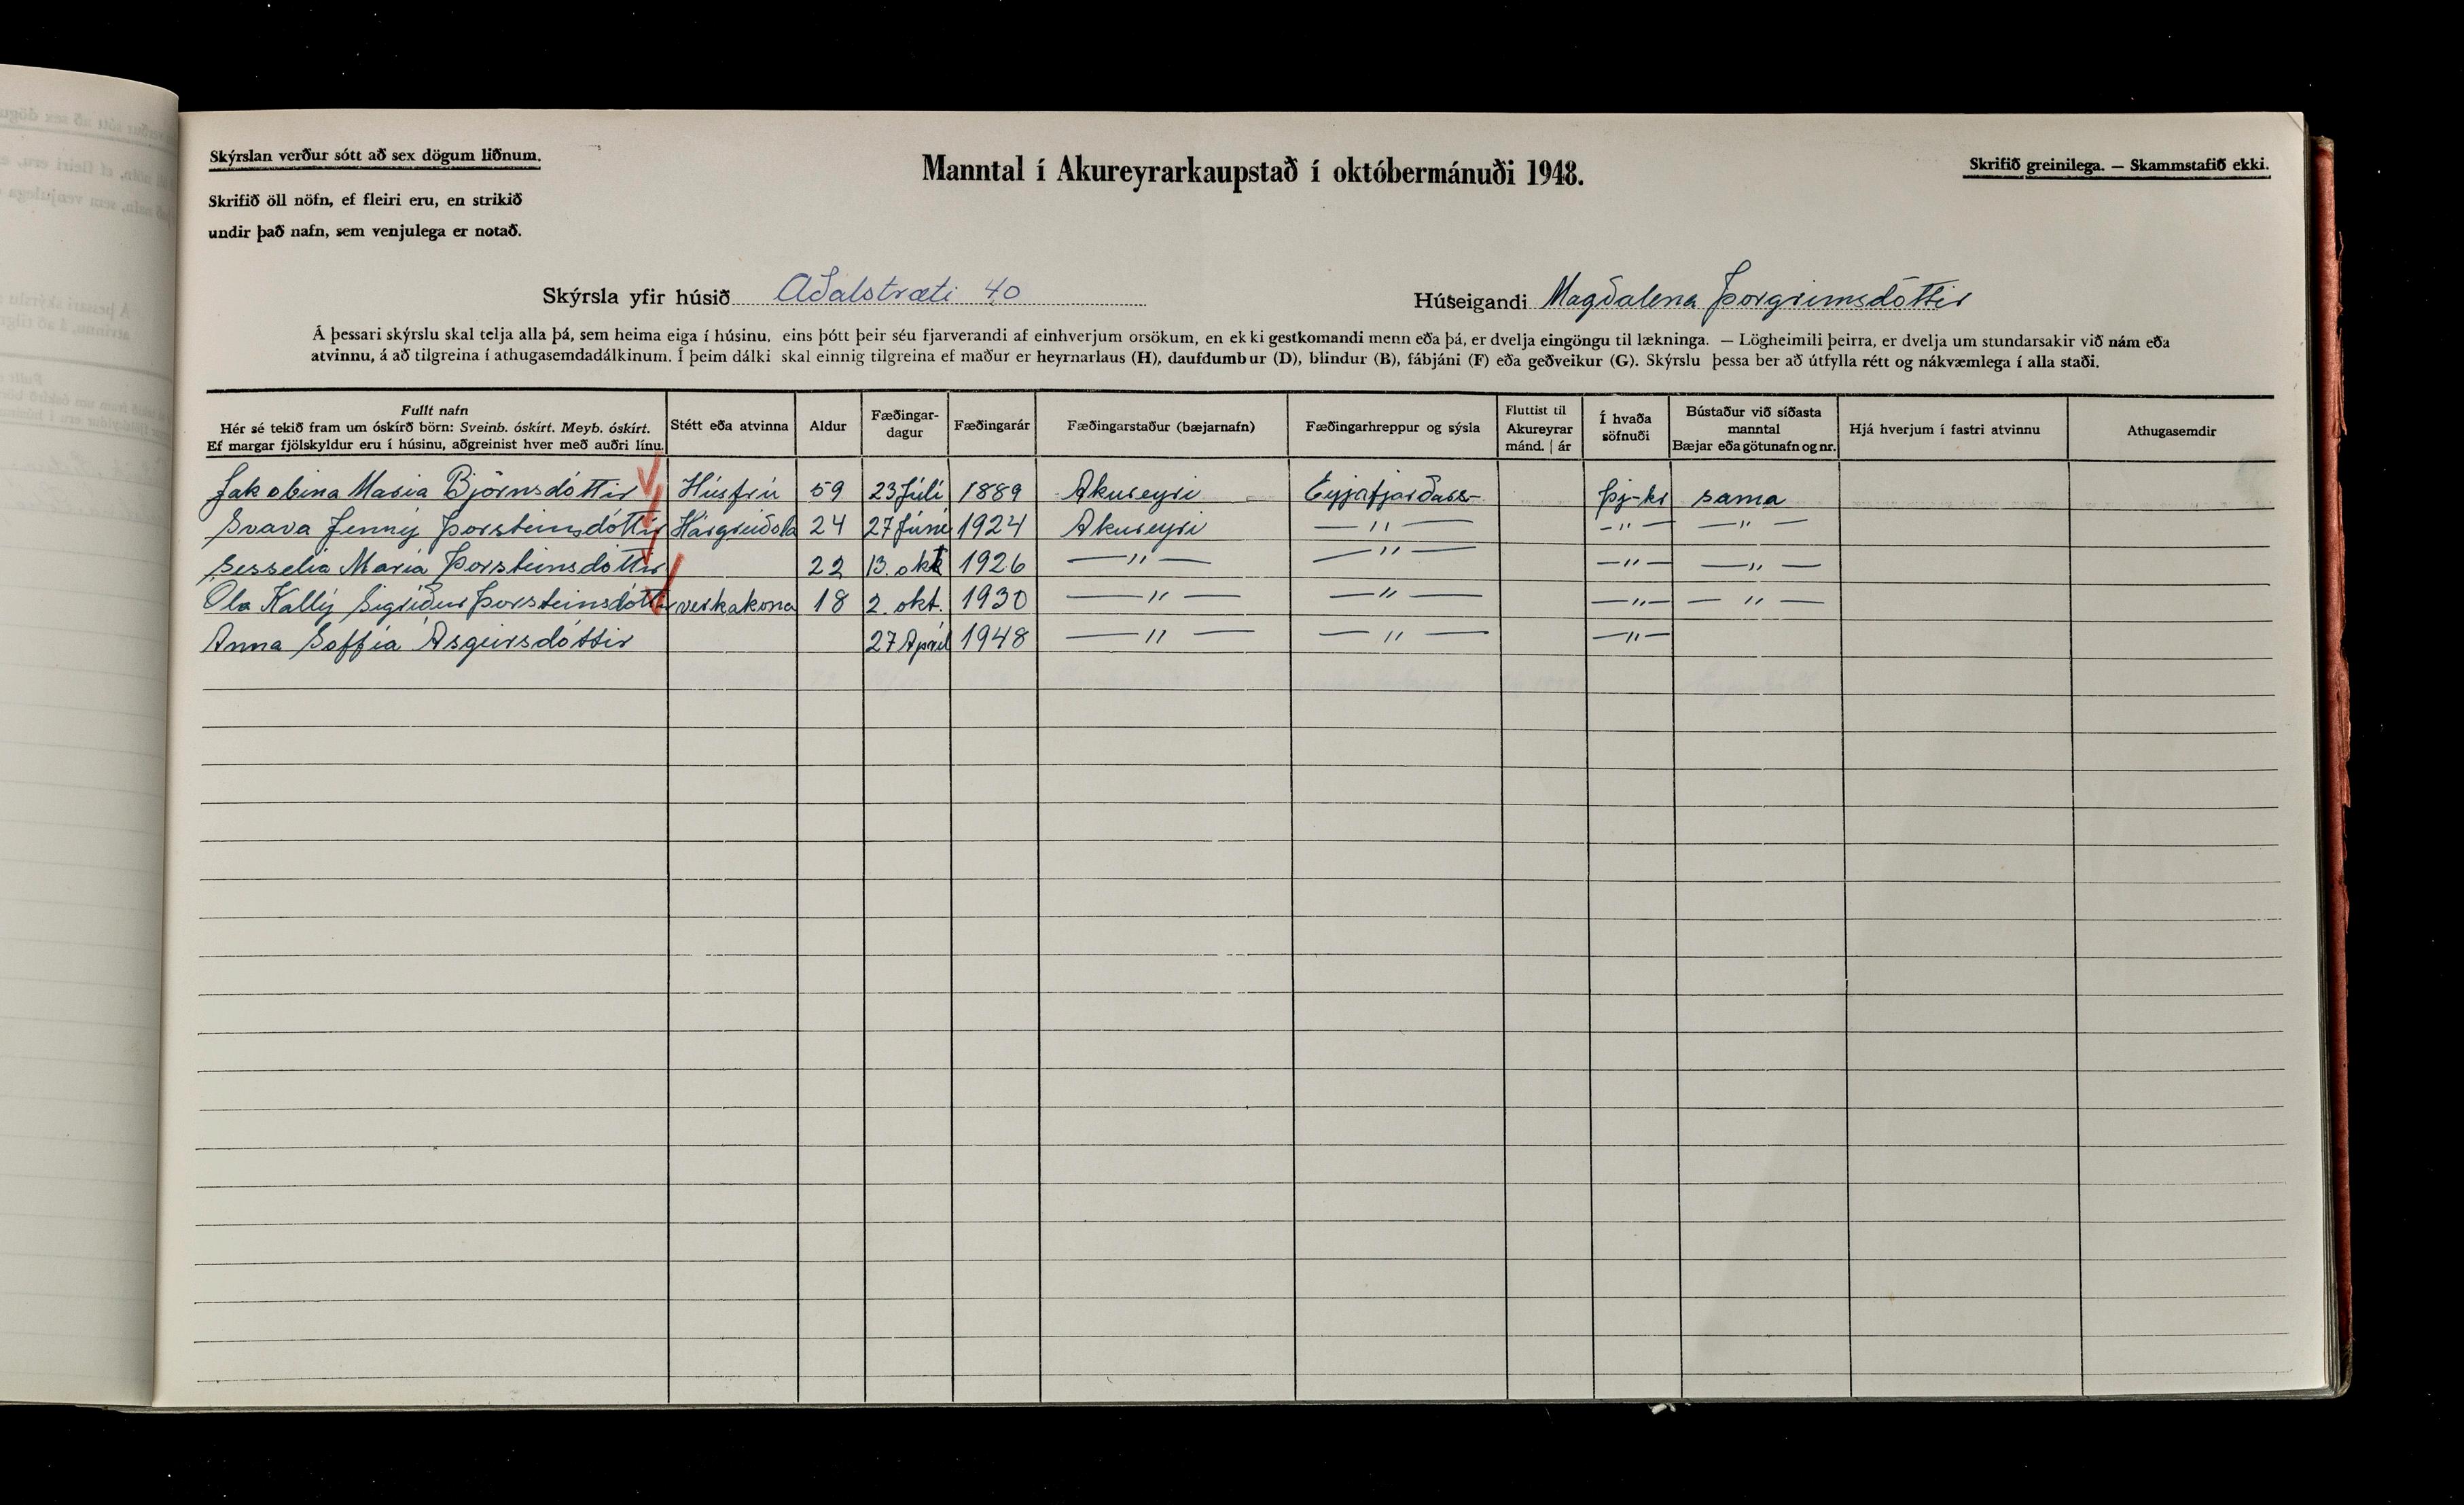 Skýrslan verður sótt að sex dögum liðnum.
Skrifið öll nöfn, ef fleiri eru, en strikið
undir það nafn, sem venjulega er notað.
Manntal í Akureyrarkaupstað í októbermánuði 1948.
Skrifið greinilega. — Skammstafið ekki.
Skýrsla yfir húsið Aðalstræti 40
Húseigandi Magðalena Þorgrimsdóttir
Á þessari skýrslu skal telja alla þá, sem heima eiga í húsinu, eins þótt þeir séu fjarverandi af einhverjum orsökum, en ekki gestkomandi menn eða þá, er dvelja eingöngu til lækninga. — Lögheimili þeirra, er dvelja um stundarsakir við nám eða
atvinnu, á að tilgreina í athugasemdadálkinum. Í þeim dálki skal einnig tilgreina ef maður er heyrnarlaus (H), daufdumbur (D), blindur (B), fábjáni (F) eða geðveikur (G). Skýrslu þessa ber að útfylla rétt og nákvæmlega í alla staði.
Fullt nafn
Hér sé tekið fram um óskírð börn: Sveinb. óskírt. Meyb. óskírt.
Ef margar fjölskyldur eru í húsinu, aðgreinist hver með auðri línu.
Stétt eða atvinna
Aldur
Fæðingar-
dagur
Fæðingarár
Fæðingarstaður (bæjarnafn)
Fæðingarhreppur og sýsla
Fluttist til
Akureyrar
mánd. | ár
Í hvaða
söfnuði
Bústaður við síðasta
manntal
Bæjar eða götunafn og nr.
Hjá hverjum í fastri atvinnu
Athugasemdir
Jakobina Maria Björnsdóttir Húsfrú 59 23 Júlí 1889 Akureyri Eyjafjarðars- Þj-kr sama
Svava Jenný Þorsteinsdóttir Hárgreiðsla 24 27 Júní 1924 Akureyri — " — — " — — " —
Sesselia Maria Þorsteinsdóttir 22 13. okt 1926 — " — — " — — " — — " —
Ola Kallý Sigríður Þorsteinsdóttir verkakona 18 2. okt. 1930 — " — — " — — " — — " —
Anna Soffía Ásgeirsdóttir 27 Apríl 1948 — " — — " — — " —